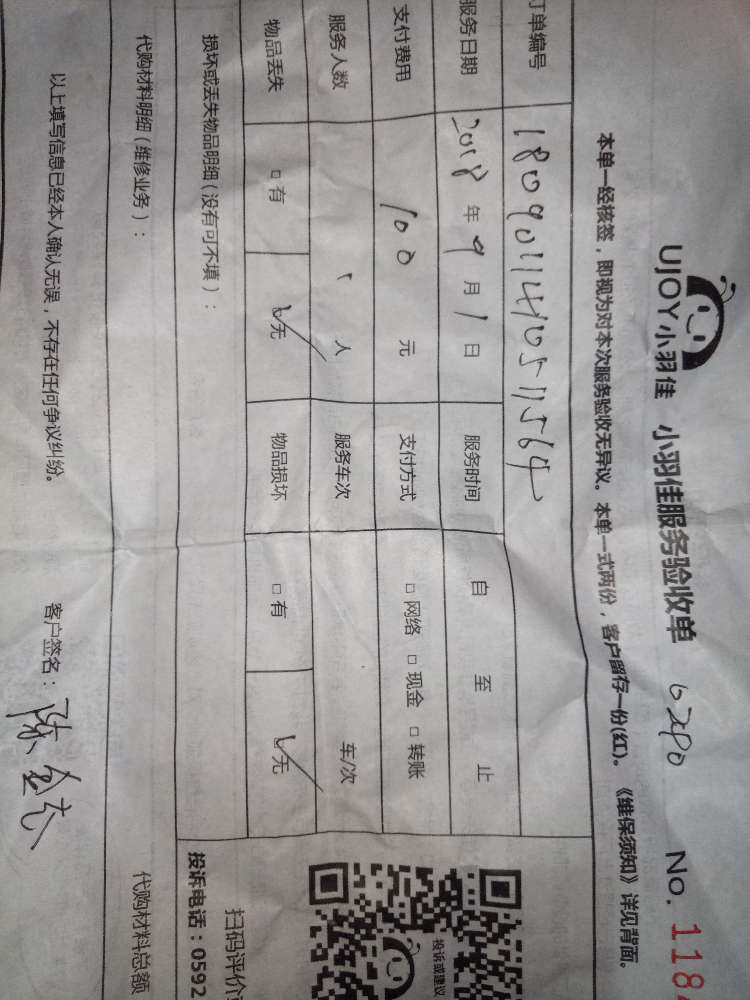 UJOY小羽佳 小羽佳服务验收单 No. 118
本单一经核签，即视为对本次服务验收无异议。本单一式两份，客户留存一份(红)。《维保须知》详见背面。
订单编号 180901140511564
服务日期 2018 年 9 月 1 日 服务时间 自 至 止
支付费用 100 元 支付方式 □ 网络 □ 现金 □ 转账
服务人数 1 人 服务车次 车/次
物品丢失 □ 有 ☑ 无 物品损坏 □ 有 ☑ 无
损坏或丢失物品明细(没有可不填)：
代购材料明细(维修业务)： 代购材料总额
以上填写信息已经本人确认无误，不存在任何争议纠纷。 客户签名：陈
投诉或建议
扫码评价
投诉电话：0592